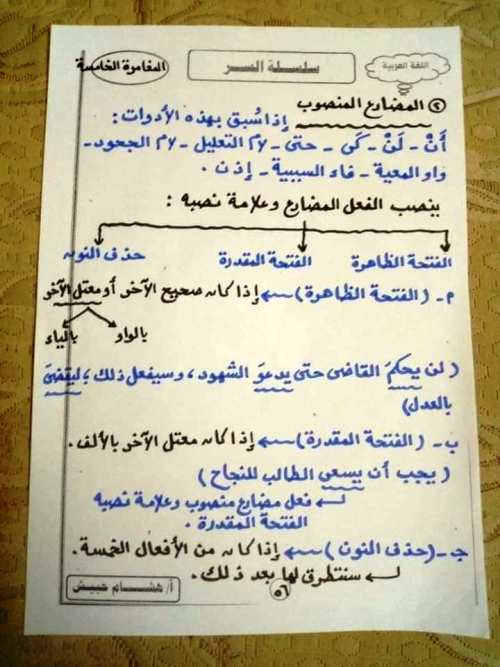 اللغة العربية
سلسلة السر
المغامرة الخامسة
٢ المضارع المنصوب
إذا سُبق بهذه الأدوات:
أَنْ - لَنْ - كَى - حتى - لام التعليل - لام الجحود -
واو المعية - فاء السببية - إذن .
ينصب الفعل المضارع وعلامة نصبه :
الفتحة الظاهرة الفتحة المقدرة حذف النون
م - ( الفتحة الظاهرة ) ← إذا كان صحيح الآخر أو معتل الآخر
بالواو بالياء
( لن يحكمَ القاضى حتى يدعوَ الشهود ، وسيفعل ذلك ؛ ليقضىَ
بالعدل)
ب - ( الفتحة المقدرة ) ← إذا كان معتل الآخر بالألف .
( يجب أن يسعى الطالب للنجاح )
فعل مضارع منصوب وعلامة نصبه
الفتحة المقدرة .
جـ - (حذف النون ) ← إذا كان من الأفعال الخمسة .
سنتطرق لها بعد ذلك .
أ/ هشام حبيش
٥٦